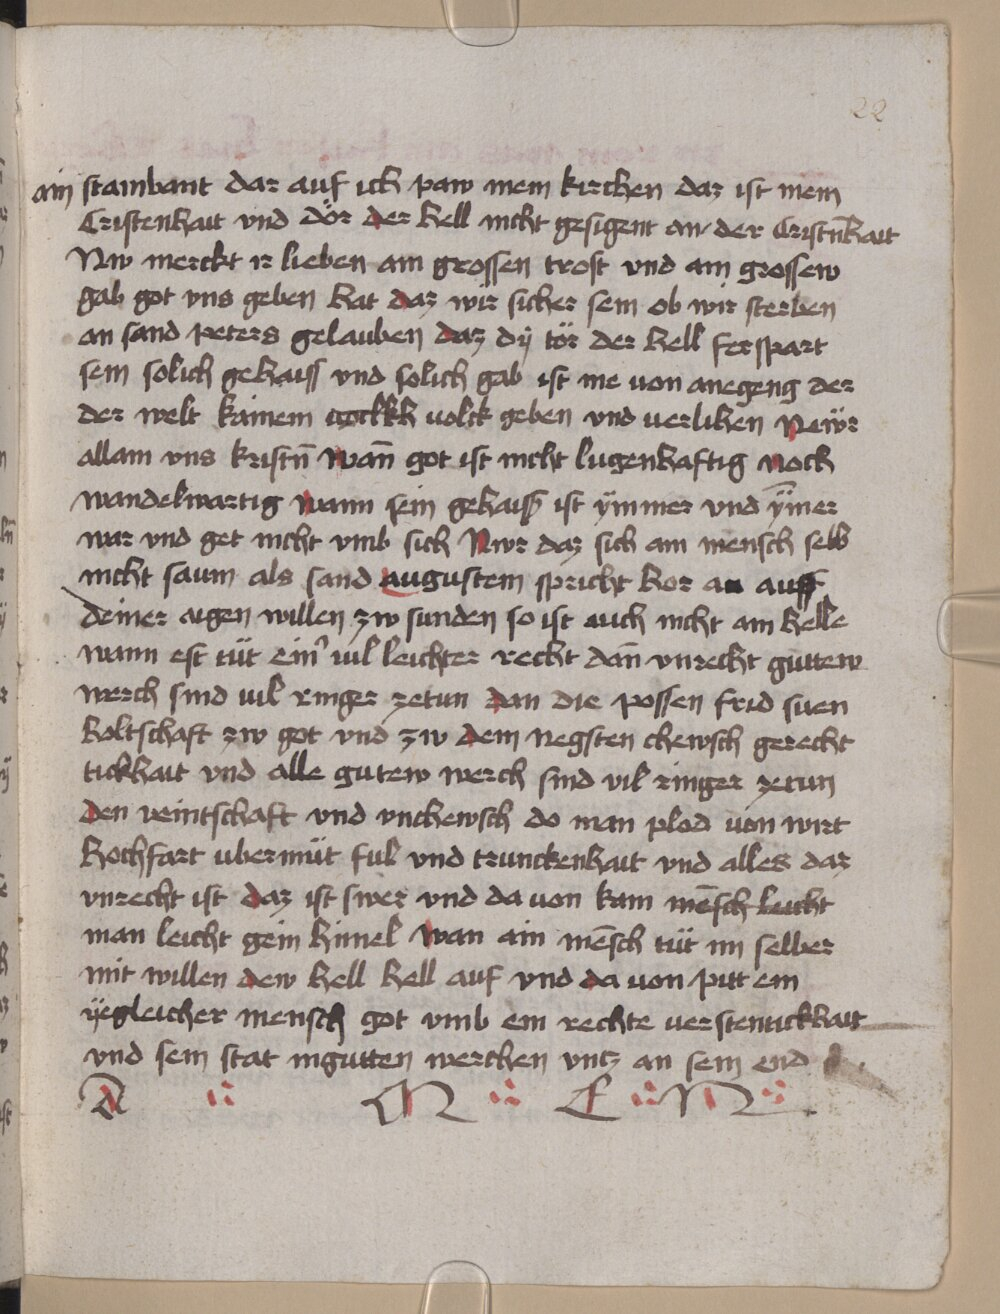 22
ain stainbant dar auf ich paw mein kirchen daz ist mein
Cristenhait vnd dör der hell nicht gesigent an der Cristn̄hait
Nw merckt ir lieben ain grossen trost vnd ain grossew
gab got vns geben hat daz wir sicher sein ob wir sterben
an sand peters gelauben daz dÿ tör der hell ferspart
sein solich gehaiss vnd solich gab ist nie uon anegeng der
der welt kainem uolck geben vnd uerlihen Newr
allain vns kristn̄ wan̄ got ist nicht lugenhaftig noch
wandelwartig wann sein gehaiss ist ÿmmer vnd ÿm̄er
war vnd get nicht vmb sich Nwr daz sich ain mensch selb
nicht saum als sand augustein spricht hor au auff
deiner aigen willen zw sunden so ist auch nicht ain helle
wann est tüt ein' uil leichter recht dan̄ vnrecht guttew
werch sind uil ringer zetun dan die possen frid suen
holtschaft zw got vnd zw dem negsten chewsch gerecht
tickhait vnd alle gutew werch sind uil ringer zetun
den veintschaft vnd vnchewsch do man plod uon wirt
hochfart ubermüt ful vnd trunckenhait vnd alles daz
vnrecht ist daz ist swer vnd da uon kain men̄sch leicht
man leicht gein himel wan ain men̄sch tüt im selber
mit willen dew hell hell auf vnd da uon pitt ein
ÿegleicher mensch got vmb ein rechte uerstentickhait
vnd sein stat in gutten werchen vntz an sein end
A M E N